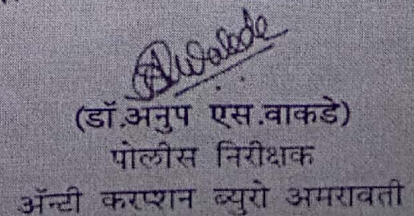 Awalede
(डॉ.अनुप एस.वाकडे)
पोलीस निरीक्षक
ॲन्टी करप्शन ब्युरो अमरावती